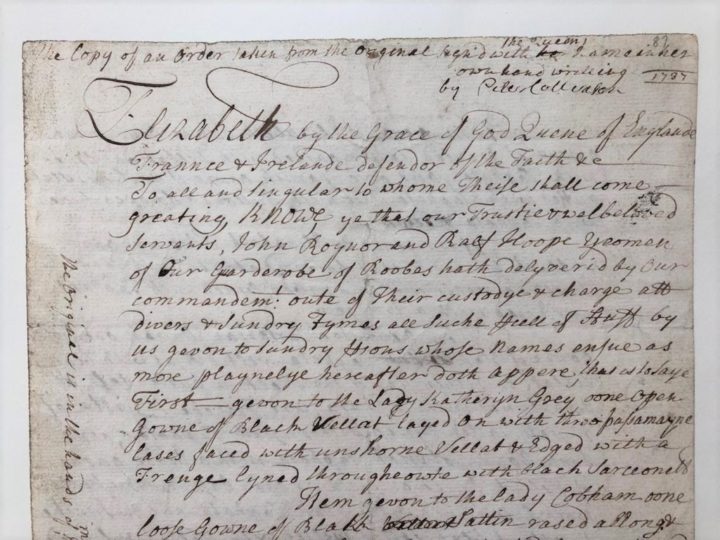 The Copy of an Order taken from the Original Sign'd with the Queens Name in her
own hand writing
by Peter Collinson
1757
Elizabeth by the Grace of God Quene of Englande
Frannce & Irelande defendor of the Faith &c
To all and singular to whome Theise shall come
greating, KNOWE ye that our Trustie & welbeloved
Servants, John Roynor and Rauf Hoope Yeomen
of Our Garderobe of Roobes hath delyverid by Our
commandemt. oute of Their custodye & charge att
divers & Sundry Tymes all Suche of Stuff by
us geven to sundry whose Names ensue as
more playnelye hereafter doth appere, that is to saye
First geven to the Lady Katheryn Grey oone open
Gowne of Black Vellat layed on with three passamayne
lases faced with unshorne Vellat & Edged with a
Frenge lyned througheowte with black Sarceonet
Item geven to the lady Cobham oone
loose Gowne of Black Sattin rased allong &
The original is in the hands of